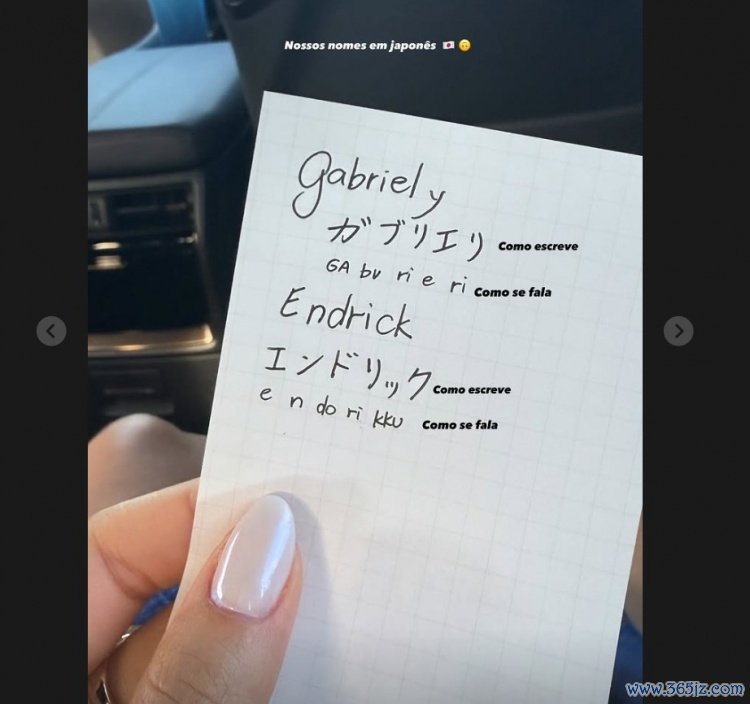 Nossos nomes em japonês 🇯🇵 🙃
Gabriely
ガブリエリ Como escreve
GA bu ri e ri Como se fala
Endrick
エンドリック Como escreve
e n do ri kku Como se fala
www.365jz.com